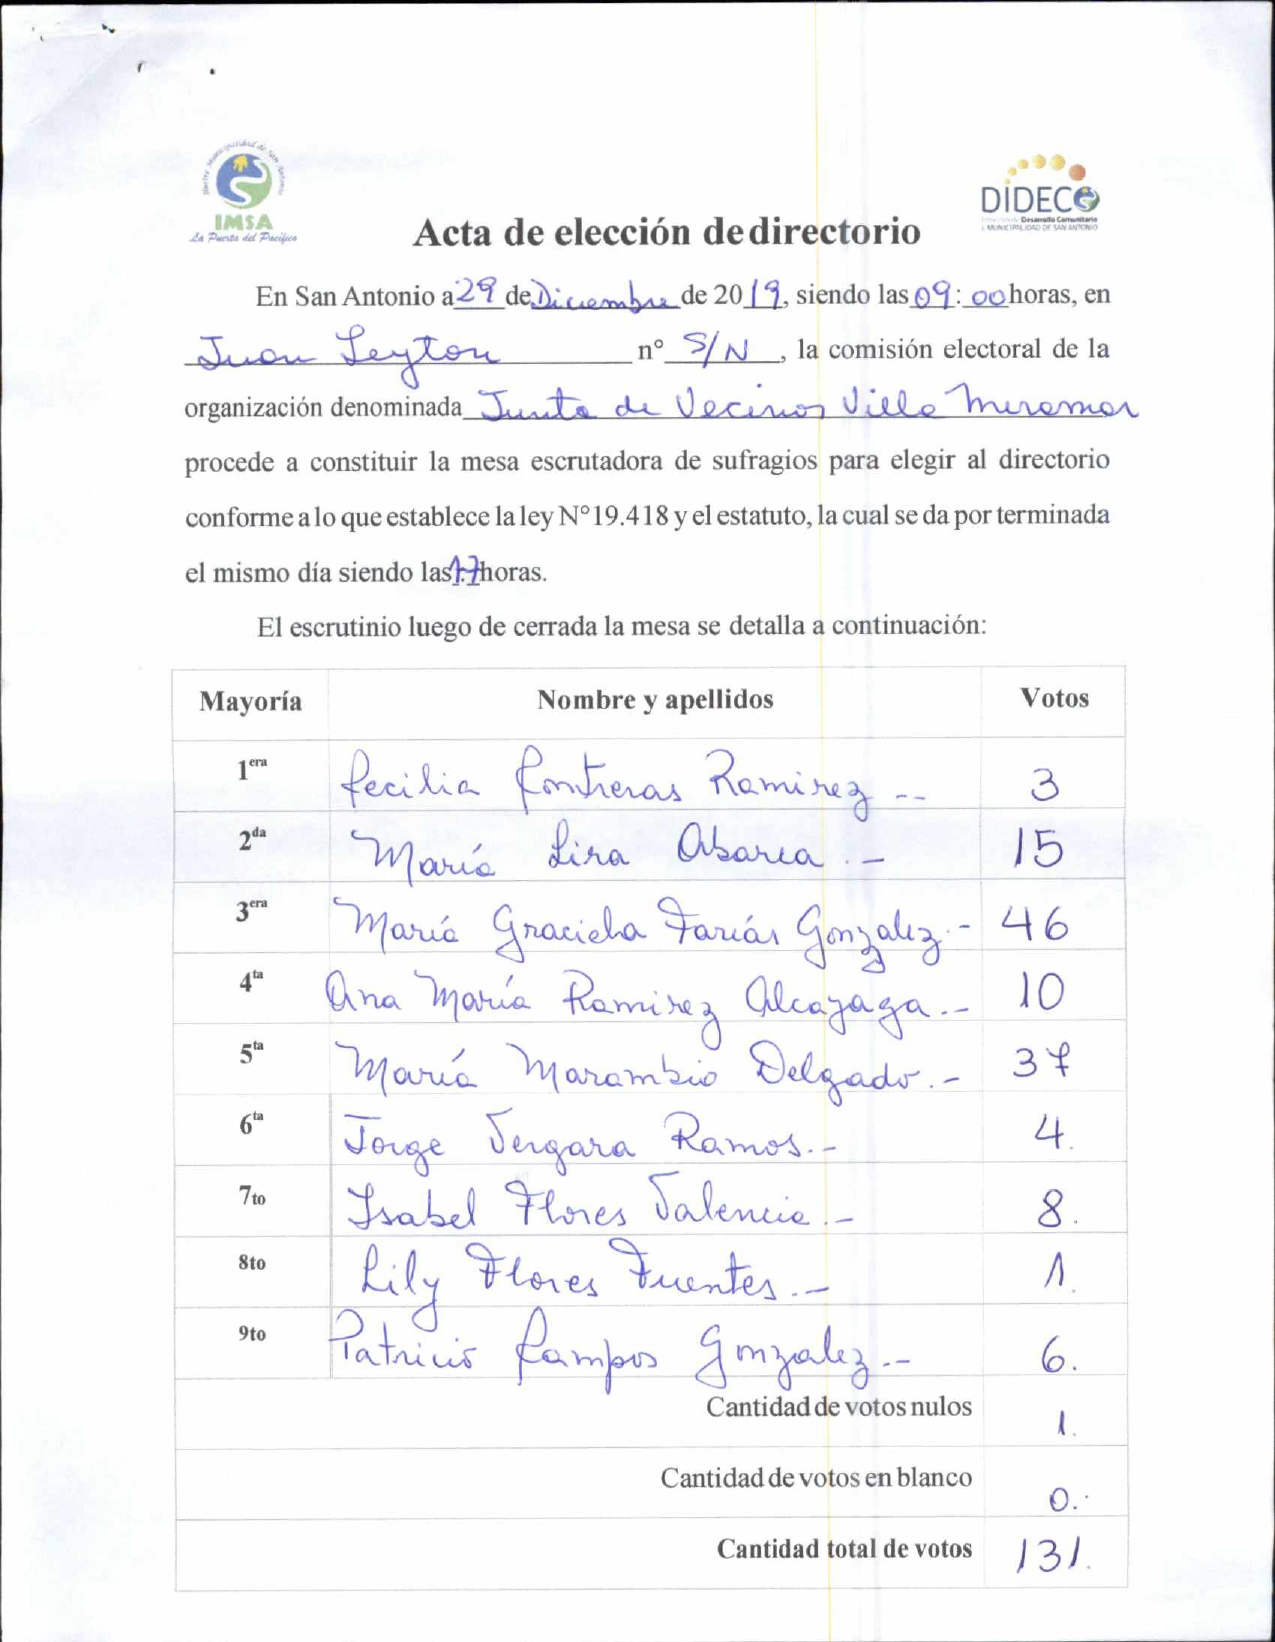 Ilustre Municipalidad de San Antonio
IMSA
La Puerta del Pacífico
DIDECO
Desarrollo Comunitario
MUNICIPALIDAD DE SAN ANTONIO
Acta de elección de directorio
En San Antonio a 29 de Diciembre de 2019, siendo las 09:00 horas, en
Juan Leyton nº S/N, la comisión electoral de la
organización denominada Junta de Vecinos Villa Miramar
procede a constituir la mesa escrutadora de sufragios para elegir al directorio
conforme a lo que establece la ley Nº19.418 y el estatuto, la cual se da por terminada
el mismo día siendo las 17 horas.
El escrutinio luego de cerrada la mesa se detalla a continuación:
Mayoría Nombre y apellidos Votos
1era Cecilia Contreras Ramirez -- 3
2da María Lira Abarca.- 15
3era María Graciela Farías Gonzalez.- 46
4ta Ana María Ramirez Alcayaga.- 10
5ta María Marambio Delgado.- 37
6ta Jorge Vergara Ramos.- 4.
7to Isabel Flores Valencia.- 8.
8to Lily Flores Fuentes.- 1.
9to Patricio Campos Gonzalez.- 6.
Cantidad de votos nulos 1.
Cantidad de votos en blanco 0.
Cantidad total de votos 131.